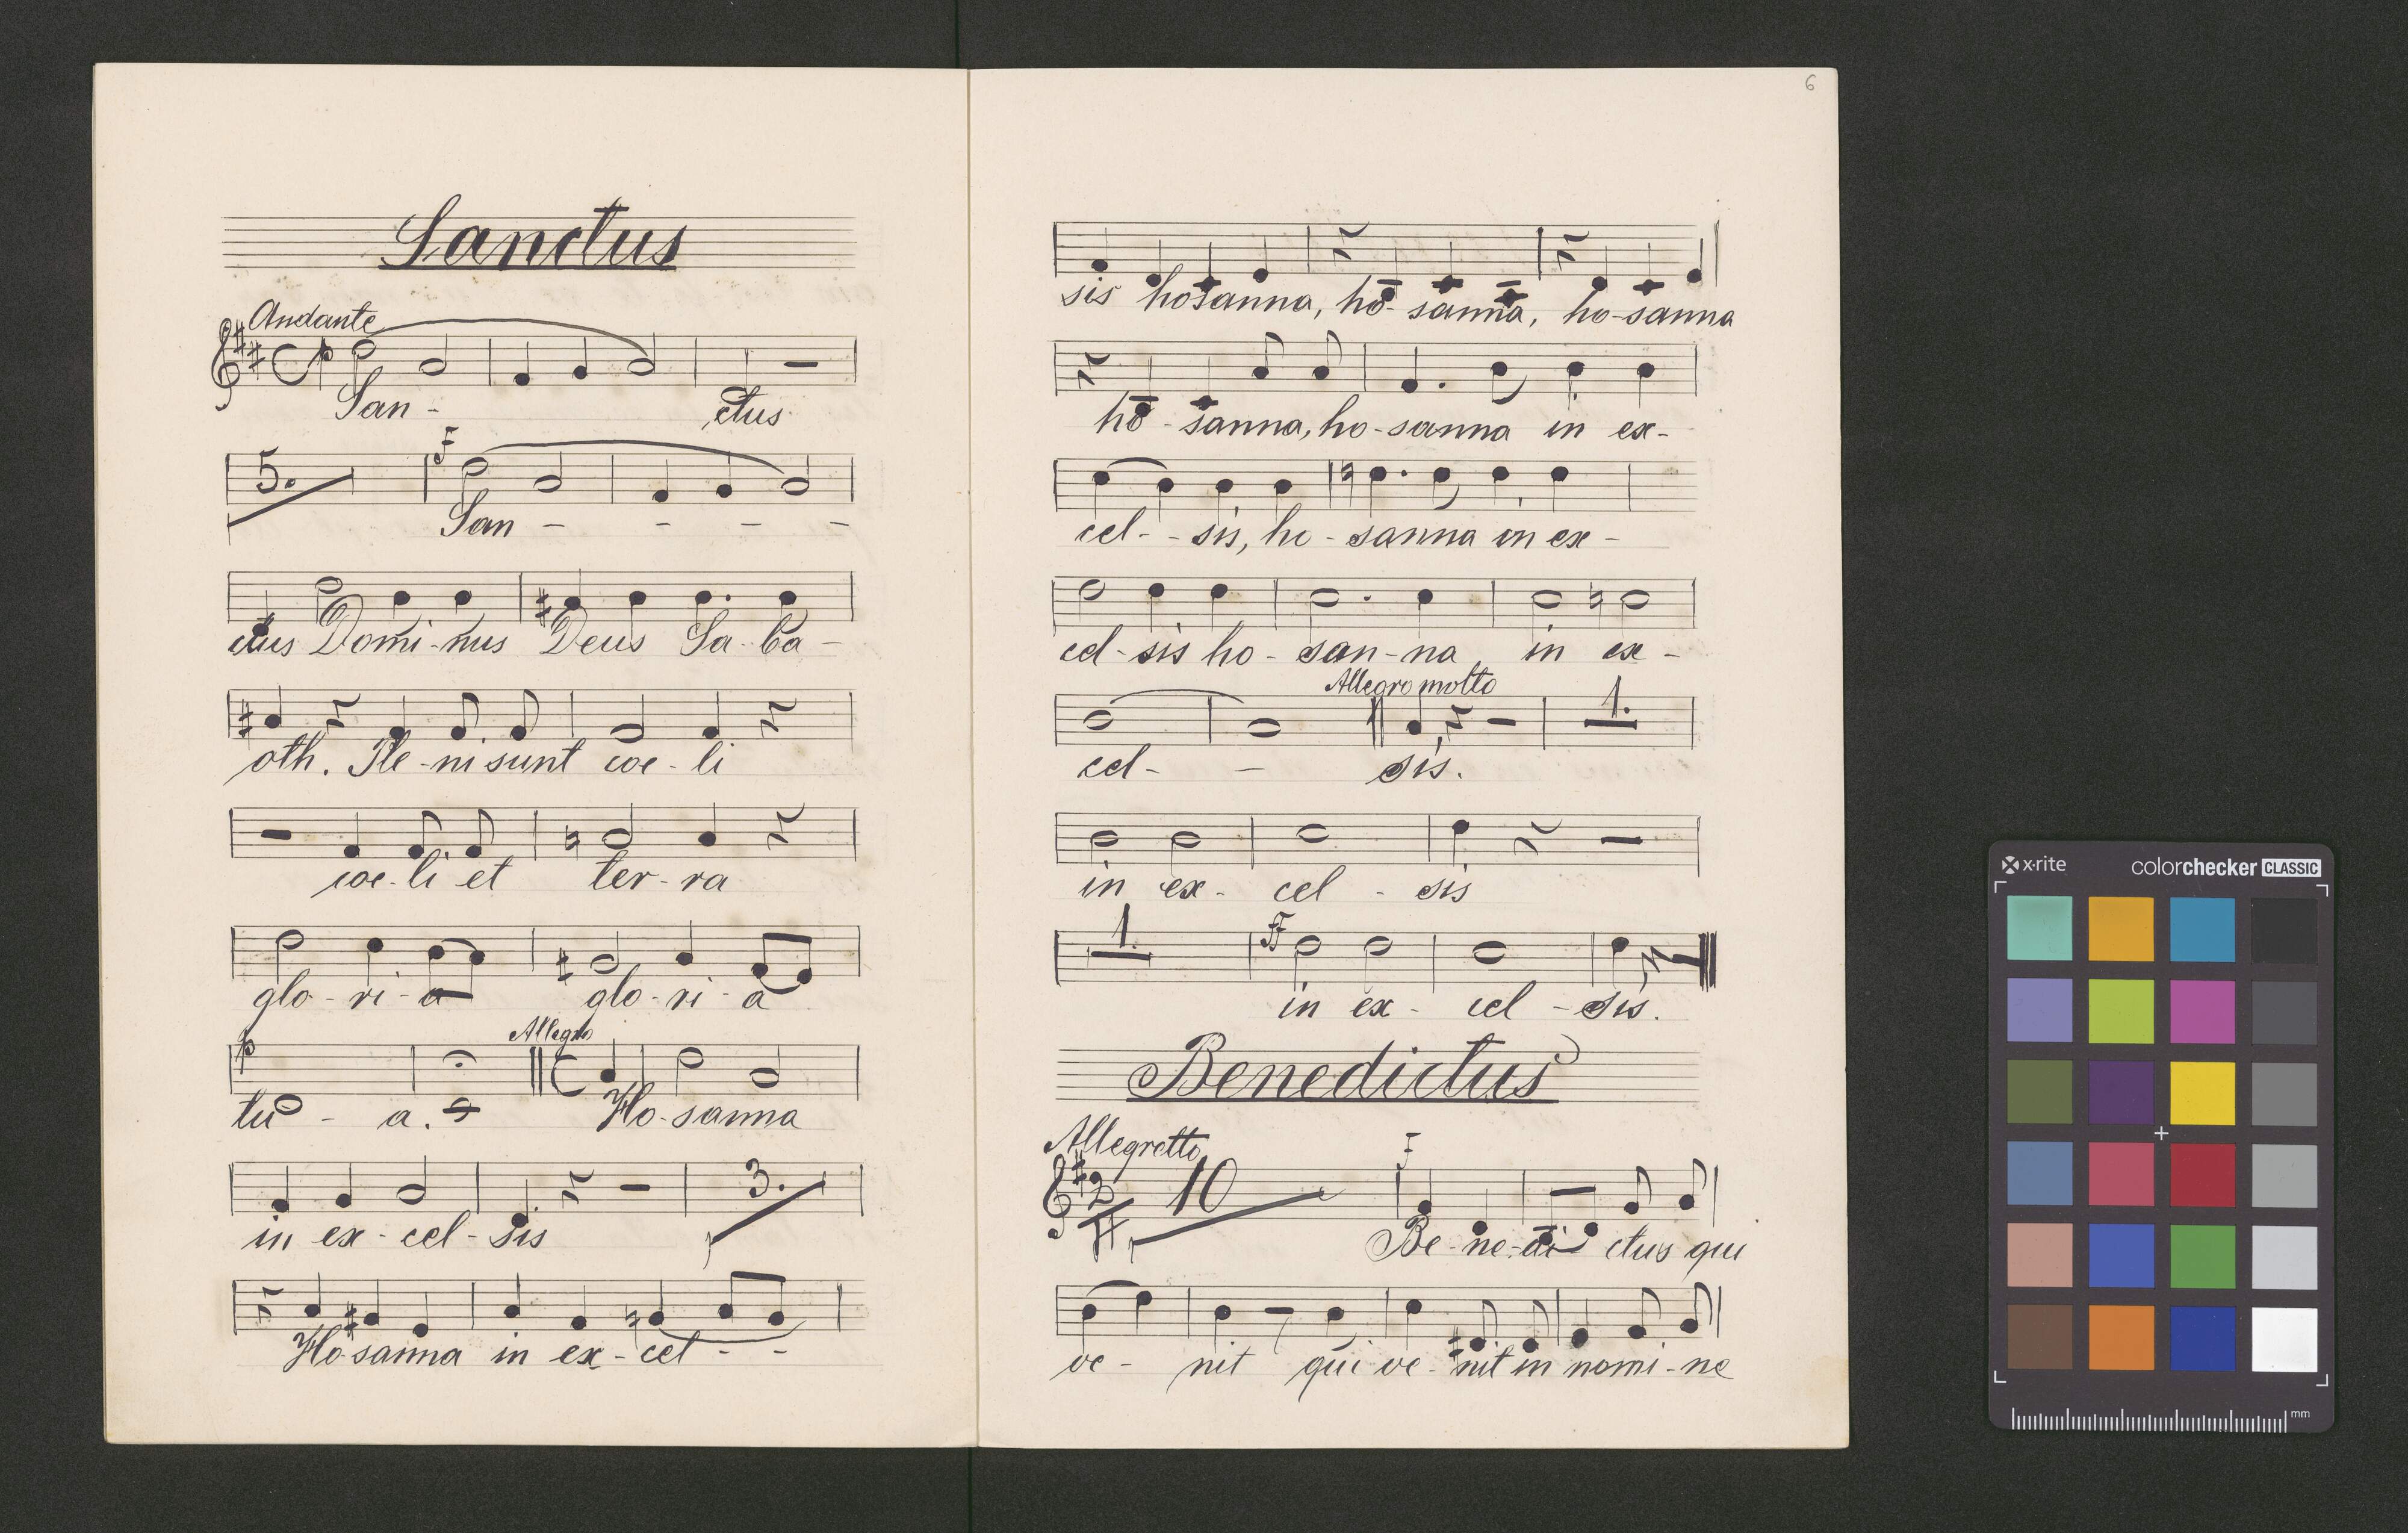 Sanctus
Andante
C p
San - ctus
5. F
San - - - -
ctus Domi-nus Deus Sa-ba-
oth. Ple-ni sunt coe-li
coe-li et ter-ra
glo-ri-a glo-ri-a
p Allegro
C
tu - a. Ho-sanna
3.
in ex-cel-sis
Ho-sanna in ex-cel - -
6
sis hosanna, ho-sanna, ho-sanna
ho-sanna, ho-sanna in ex-
cel--sis, ho-sanna in ex-
cel-sis ho-san-na in ex-
Allegro molto
1.
cel- - sis.
in ex-cel-sis
1. FF
in ex-cel-sis.
Benedictus
Allegretto
2/4 10 F
Be-ne-di ctus qui
ve-nit qui ve-nit in nomi-ne
x-rite colorchecker CLASSIC
mm